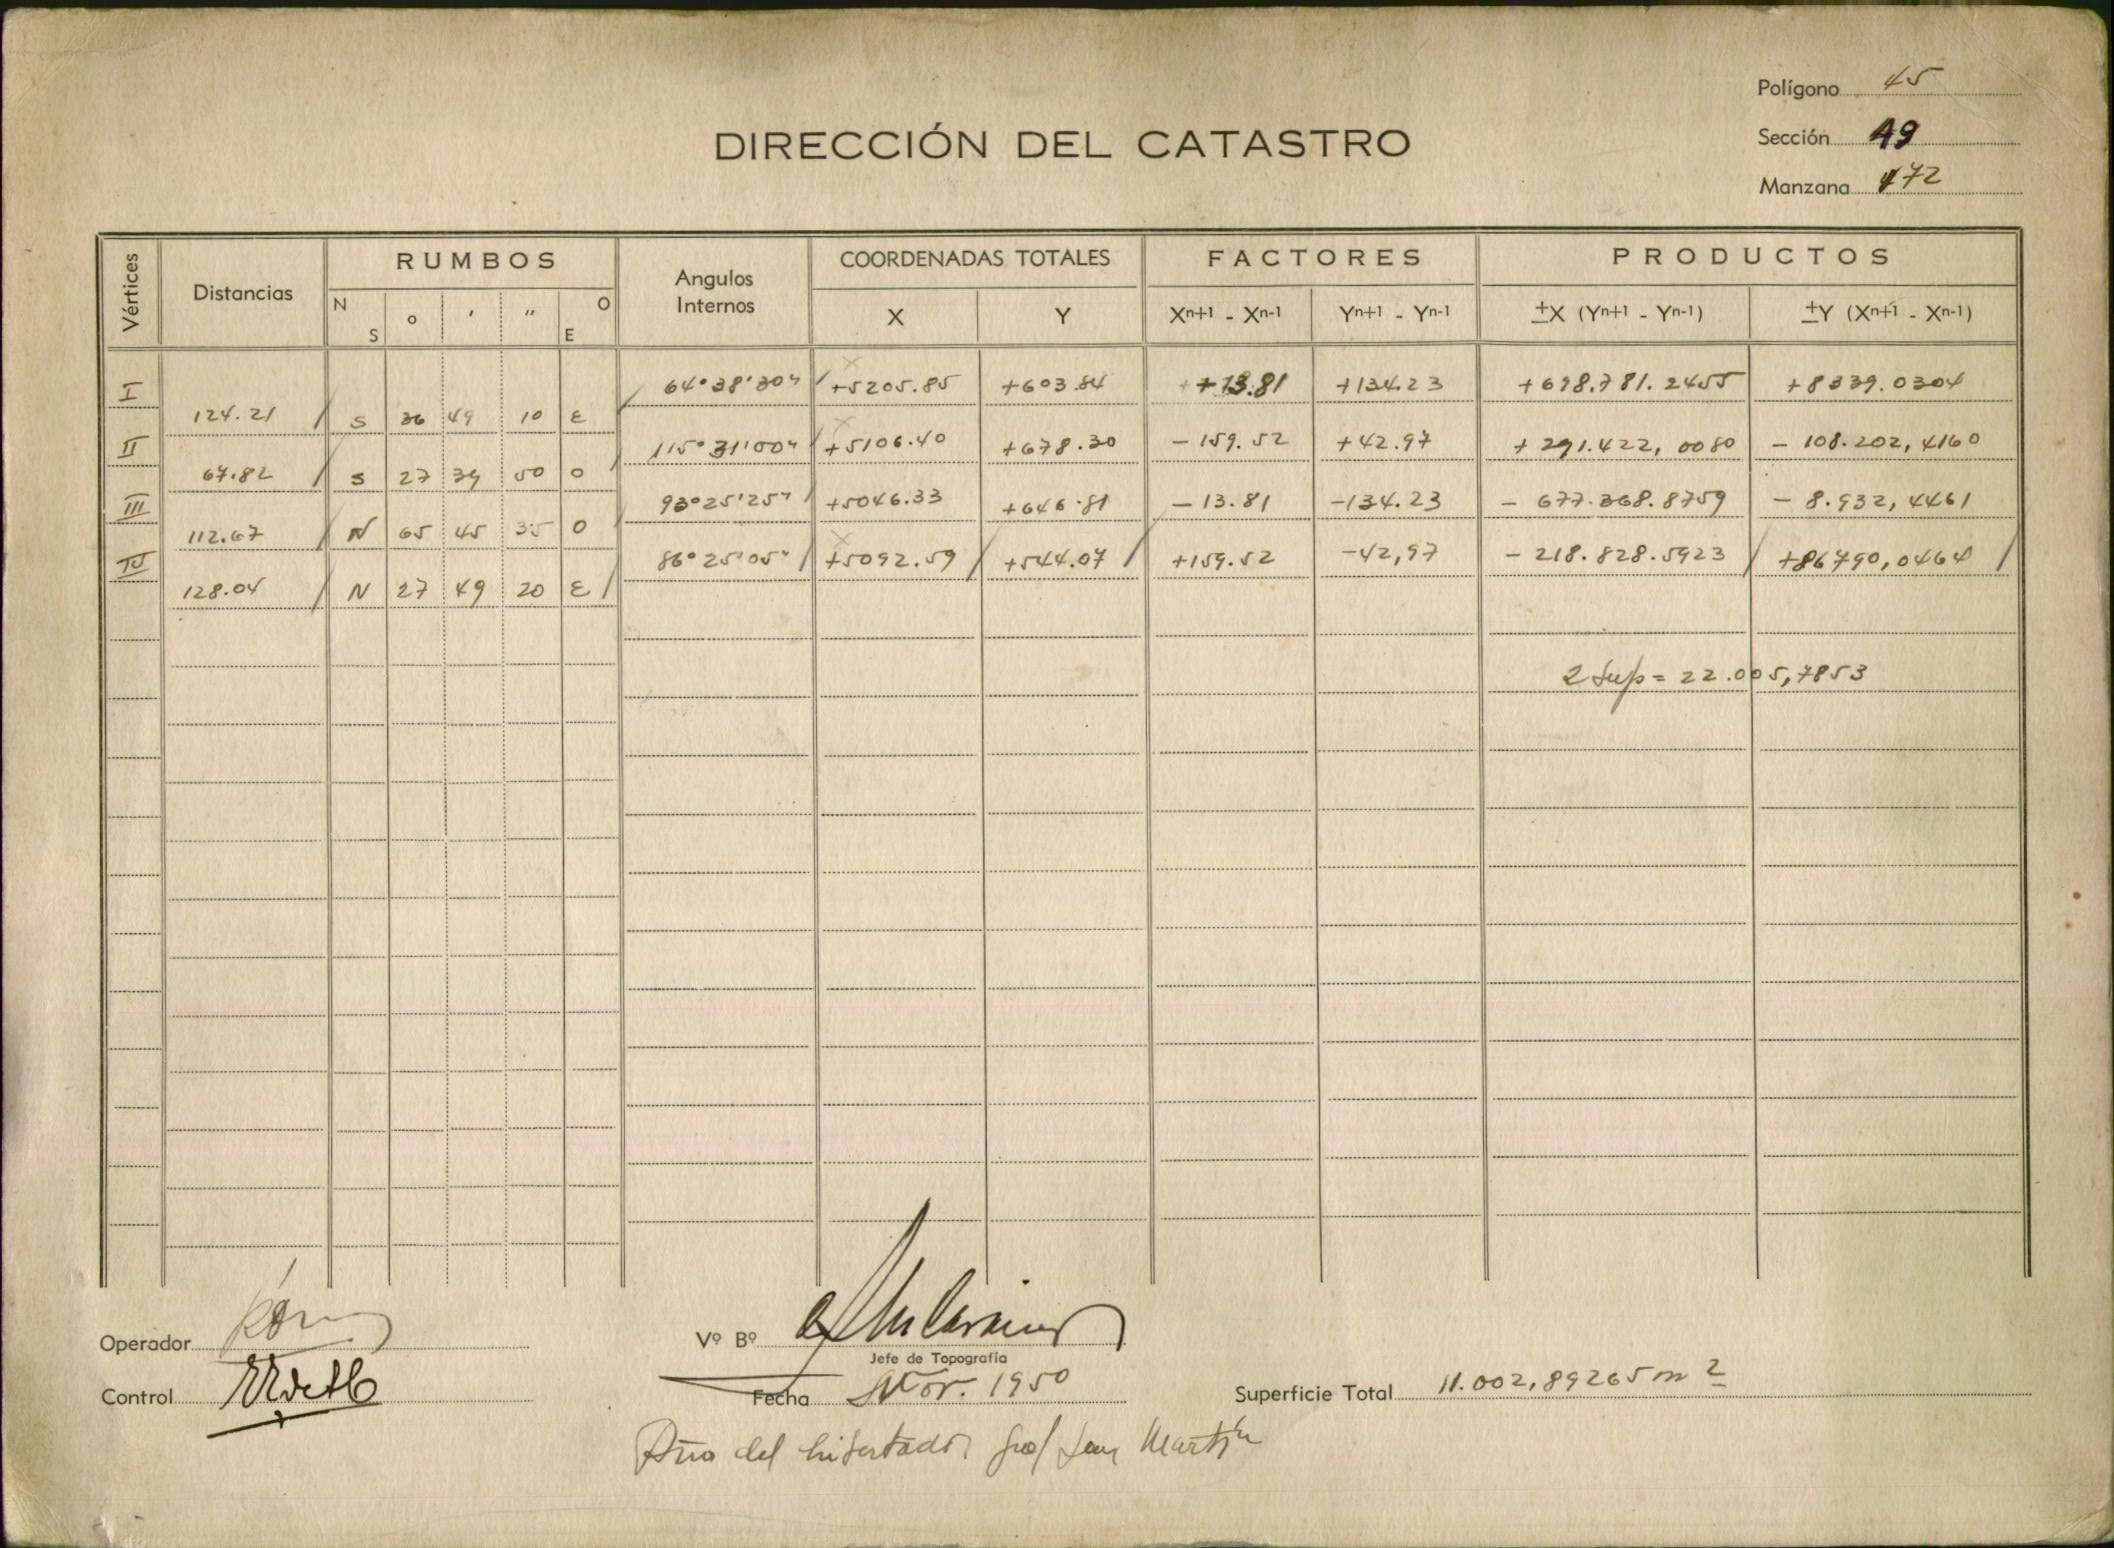 Polígono 45
DIRECCIÓN DEL CATASTRO
Sección 49
Manzana 472
Vértices Distancias RUMBOS Angulos Internos COORDENADAS TOTALES FACTORES PRODUCTOS
N S o ' " O E X Y Xn+1 - Xn-1 Yn+1 - Yn-1 ±X (Yn+1 - Yn-1) ±Y (Xn+1 - Xn-1)
I 64°38'30" +5205.85 +603.84 +13.81 +134.23 +698.781.2455 +8339.0304
124.21 S 36 49 10 E
II 115°31'00" +5106.40 +678.30 -159.52 +42.97 +291.422,0080 -108.202,4160
67.82 S 27 39 50 O
III 93°25'25" +5046.33 +646.81 -13.81 -134.23 -677.368.8759 -8.932,4461
112.67 N 65 45 35 O
IV 86°25'05" +5092.59 +544.07 +159.52 -42,97 -218.828.5923 +86790,0464
128.04 N 27 49 20 E
2 Sup = 22.005,7853
Operador
Vº Bº
Jefe de Topografía
Control
Fecha Nov. 1950
Superficie Total 11.002,89265 m2
Año del Libertador Gral San Martín